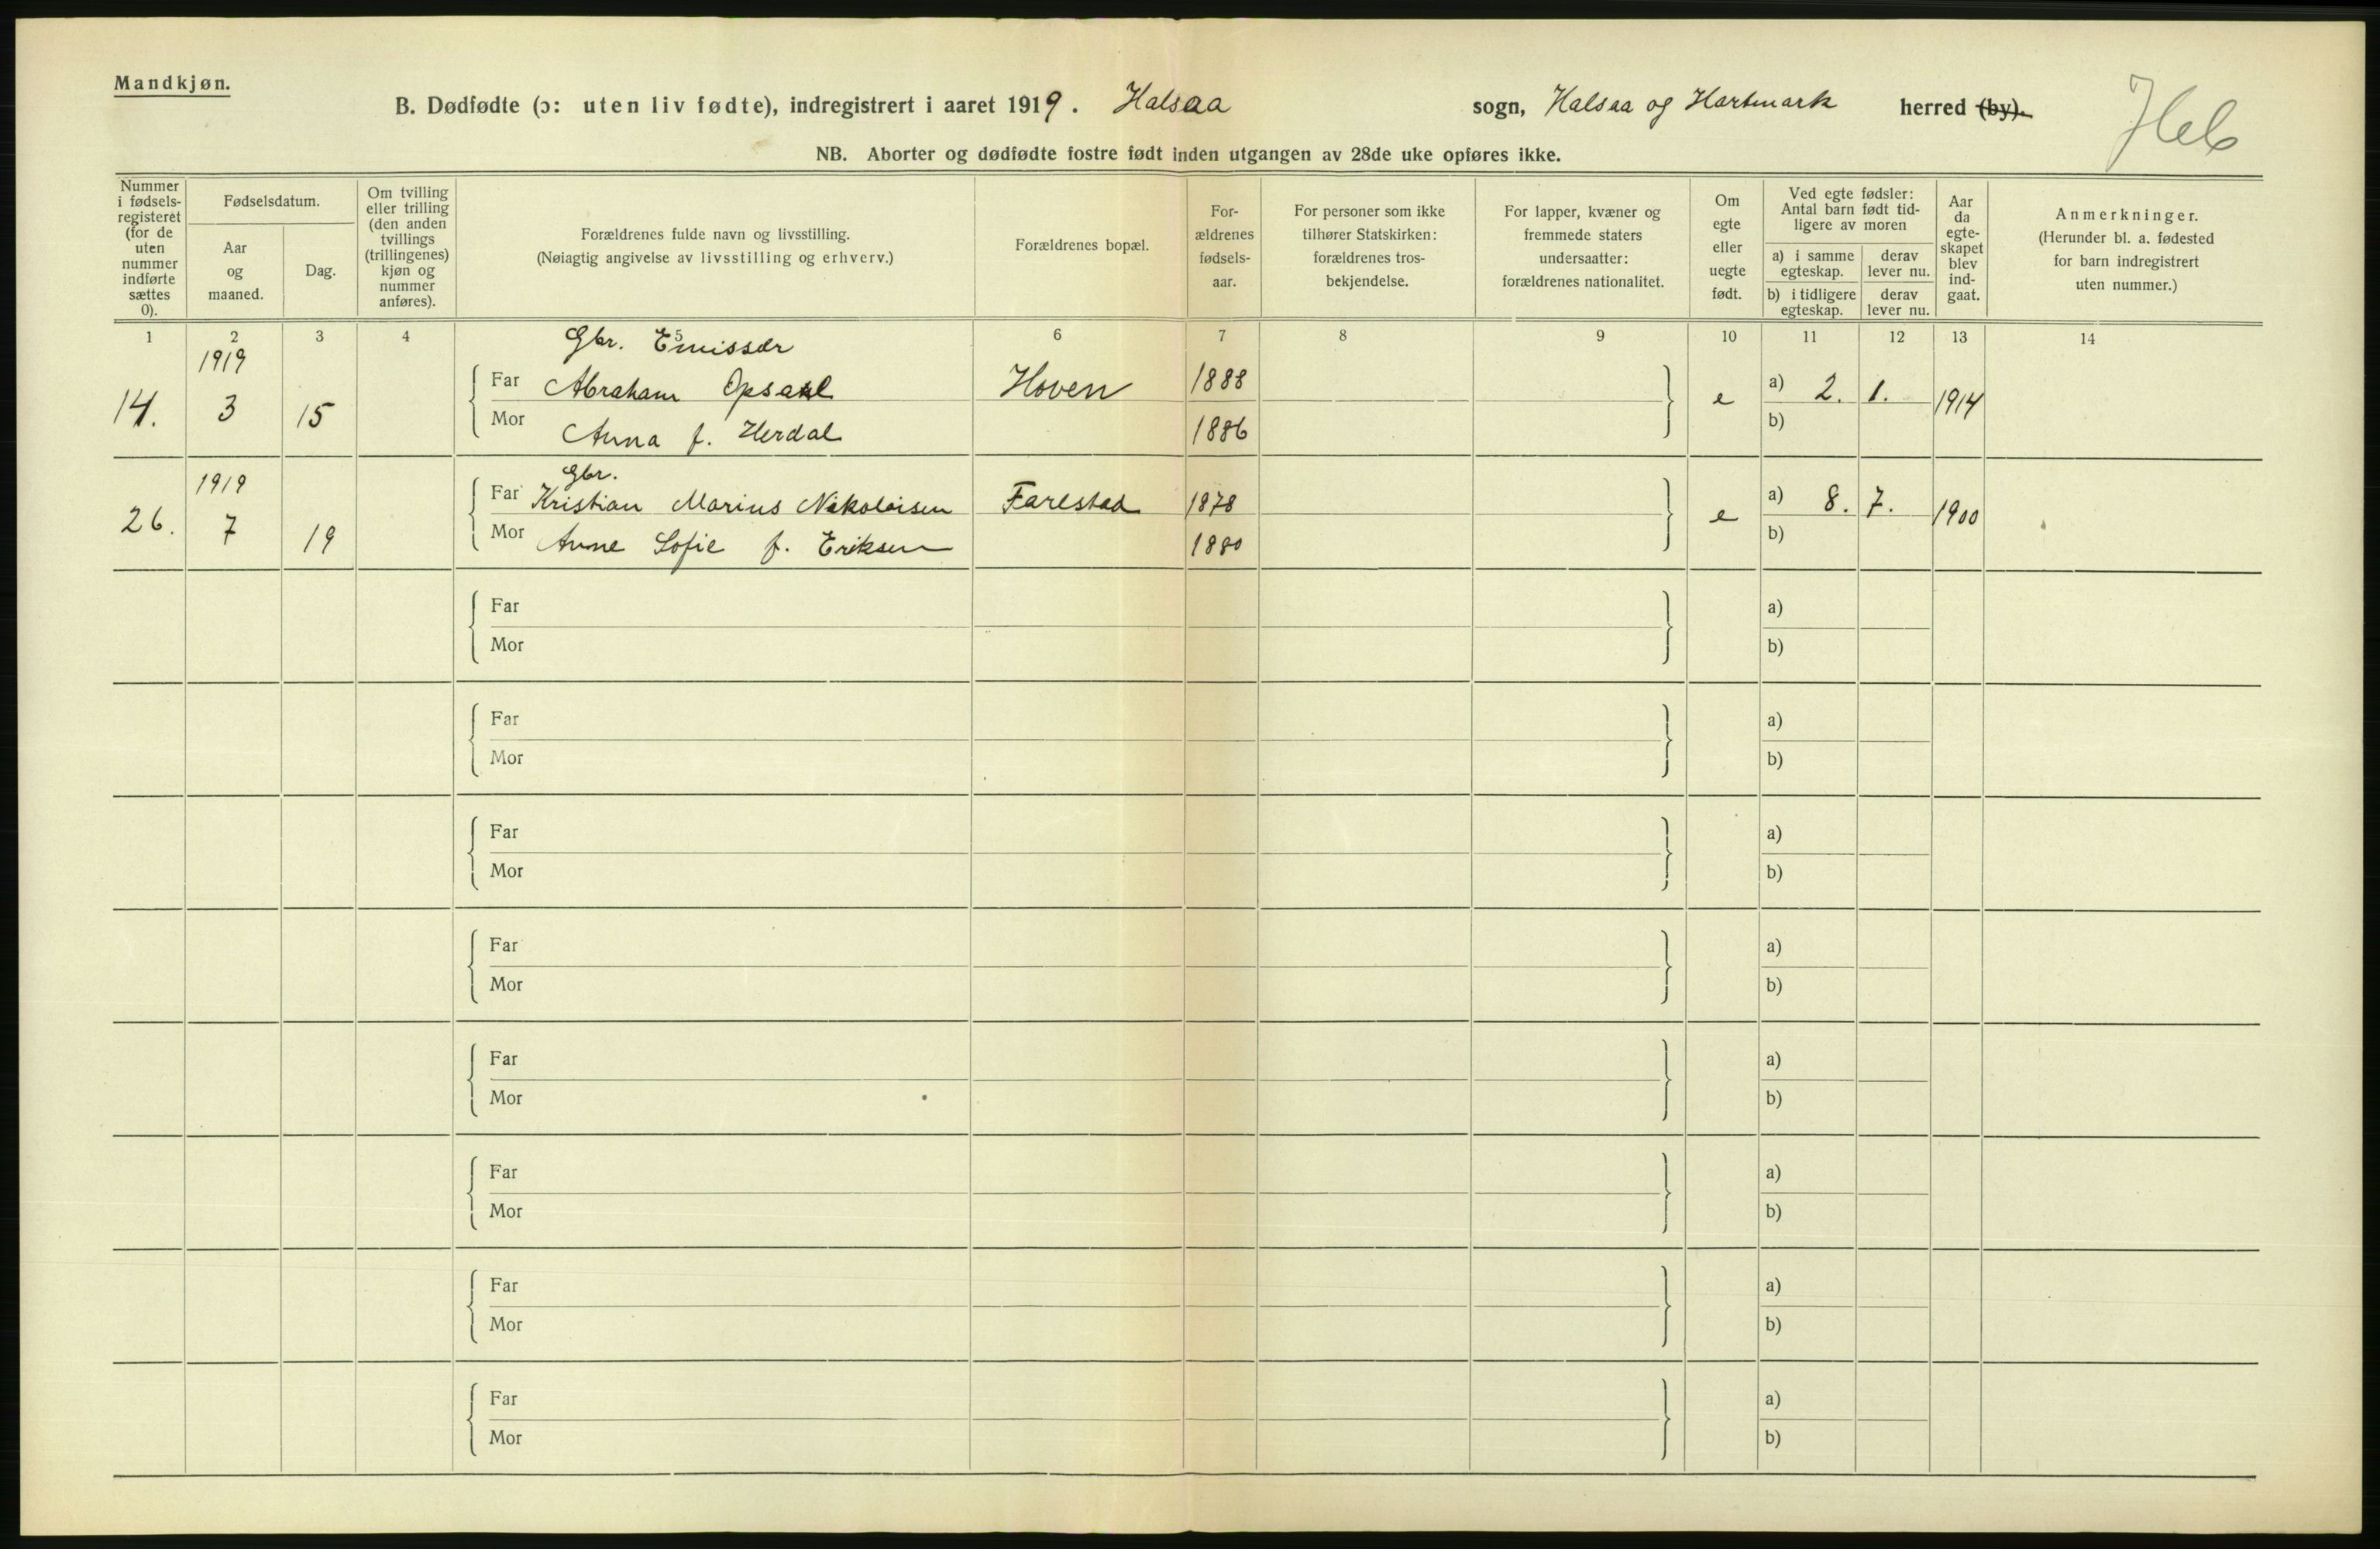 Mandkjøn.
B. Dødfødte (ɔ: uten liv fødte), indregistrert i aaret 1919. Halsaa sogn, Halsaa og Hartmark herred (by).
NB. Aborter og dødfødte fostre født inden utgangen av 28de uke opføres ikke.
Nummer
i fødsels-
registeret
(for de
uten
nummer
indførte
sættes
0).
Fødselsdatum.
Aar
og
maaned.
Dag.
Om tvilling
eller trilling
(den anden
tvillings
(trillingenes)
kjøn og
nummer
anføres).
Forældrenes fulde navn og livsstilling.
(Nøiagtig angivelse av livsstilling og erhverv.)
Forældrenes bopæl.
For-
ældrenes
fødsels-
aar.
For personer som ikke
tilhører Statskirken:
forældrenes tros-
bekjendelse.
For lapper, kvæner og
fremmede staters
undersaatter:
forældrenes nationalitet.
Om
egte
eller
uegte
født.
Ved egte fødsler:
Antal barn født tid-
ligere av moren
a) i samme
egteskap.
derav
lever nu.
b) i tidligere
egteskap.
derav
lever nu.
Aar
da
egte-
skapet
blev
ind-
gaat.
Anmerkninger.
(Herunder bl. a. fødested
for barn indregistrert
uten nummer.)
1 2 3 4 5 6 7 8 9 10 11 12 13 14
1919 Gbr. Emissær
Far Abraham Opsahl Hoven 1888 a) 2. 1.
14. 3 15 e 1914
Mor Anna f. Herdal 1886 b)
1919 Gbr.
Far Kristian Marius Nikolaisen Farestad 1878 a) 8. 7.
26. 7 19 e 1900
Mor Anne Sofie f. Eriksen 1880 b)
Far a)
Mor b)
Far a)
Mor b)
Far a)
Mor b)
Far a)
Mor b)
Far a)
Mor b)
Far a)
Mor b)
Far a)
Mor b)
Far a)
Mor b)